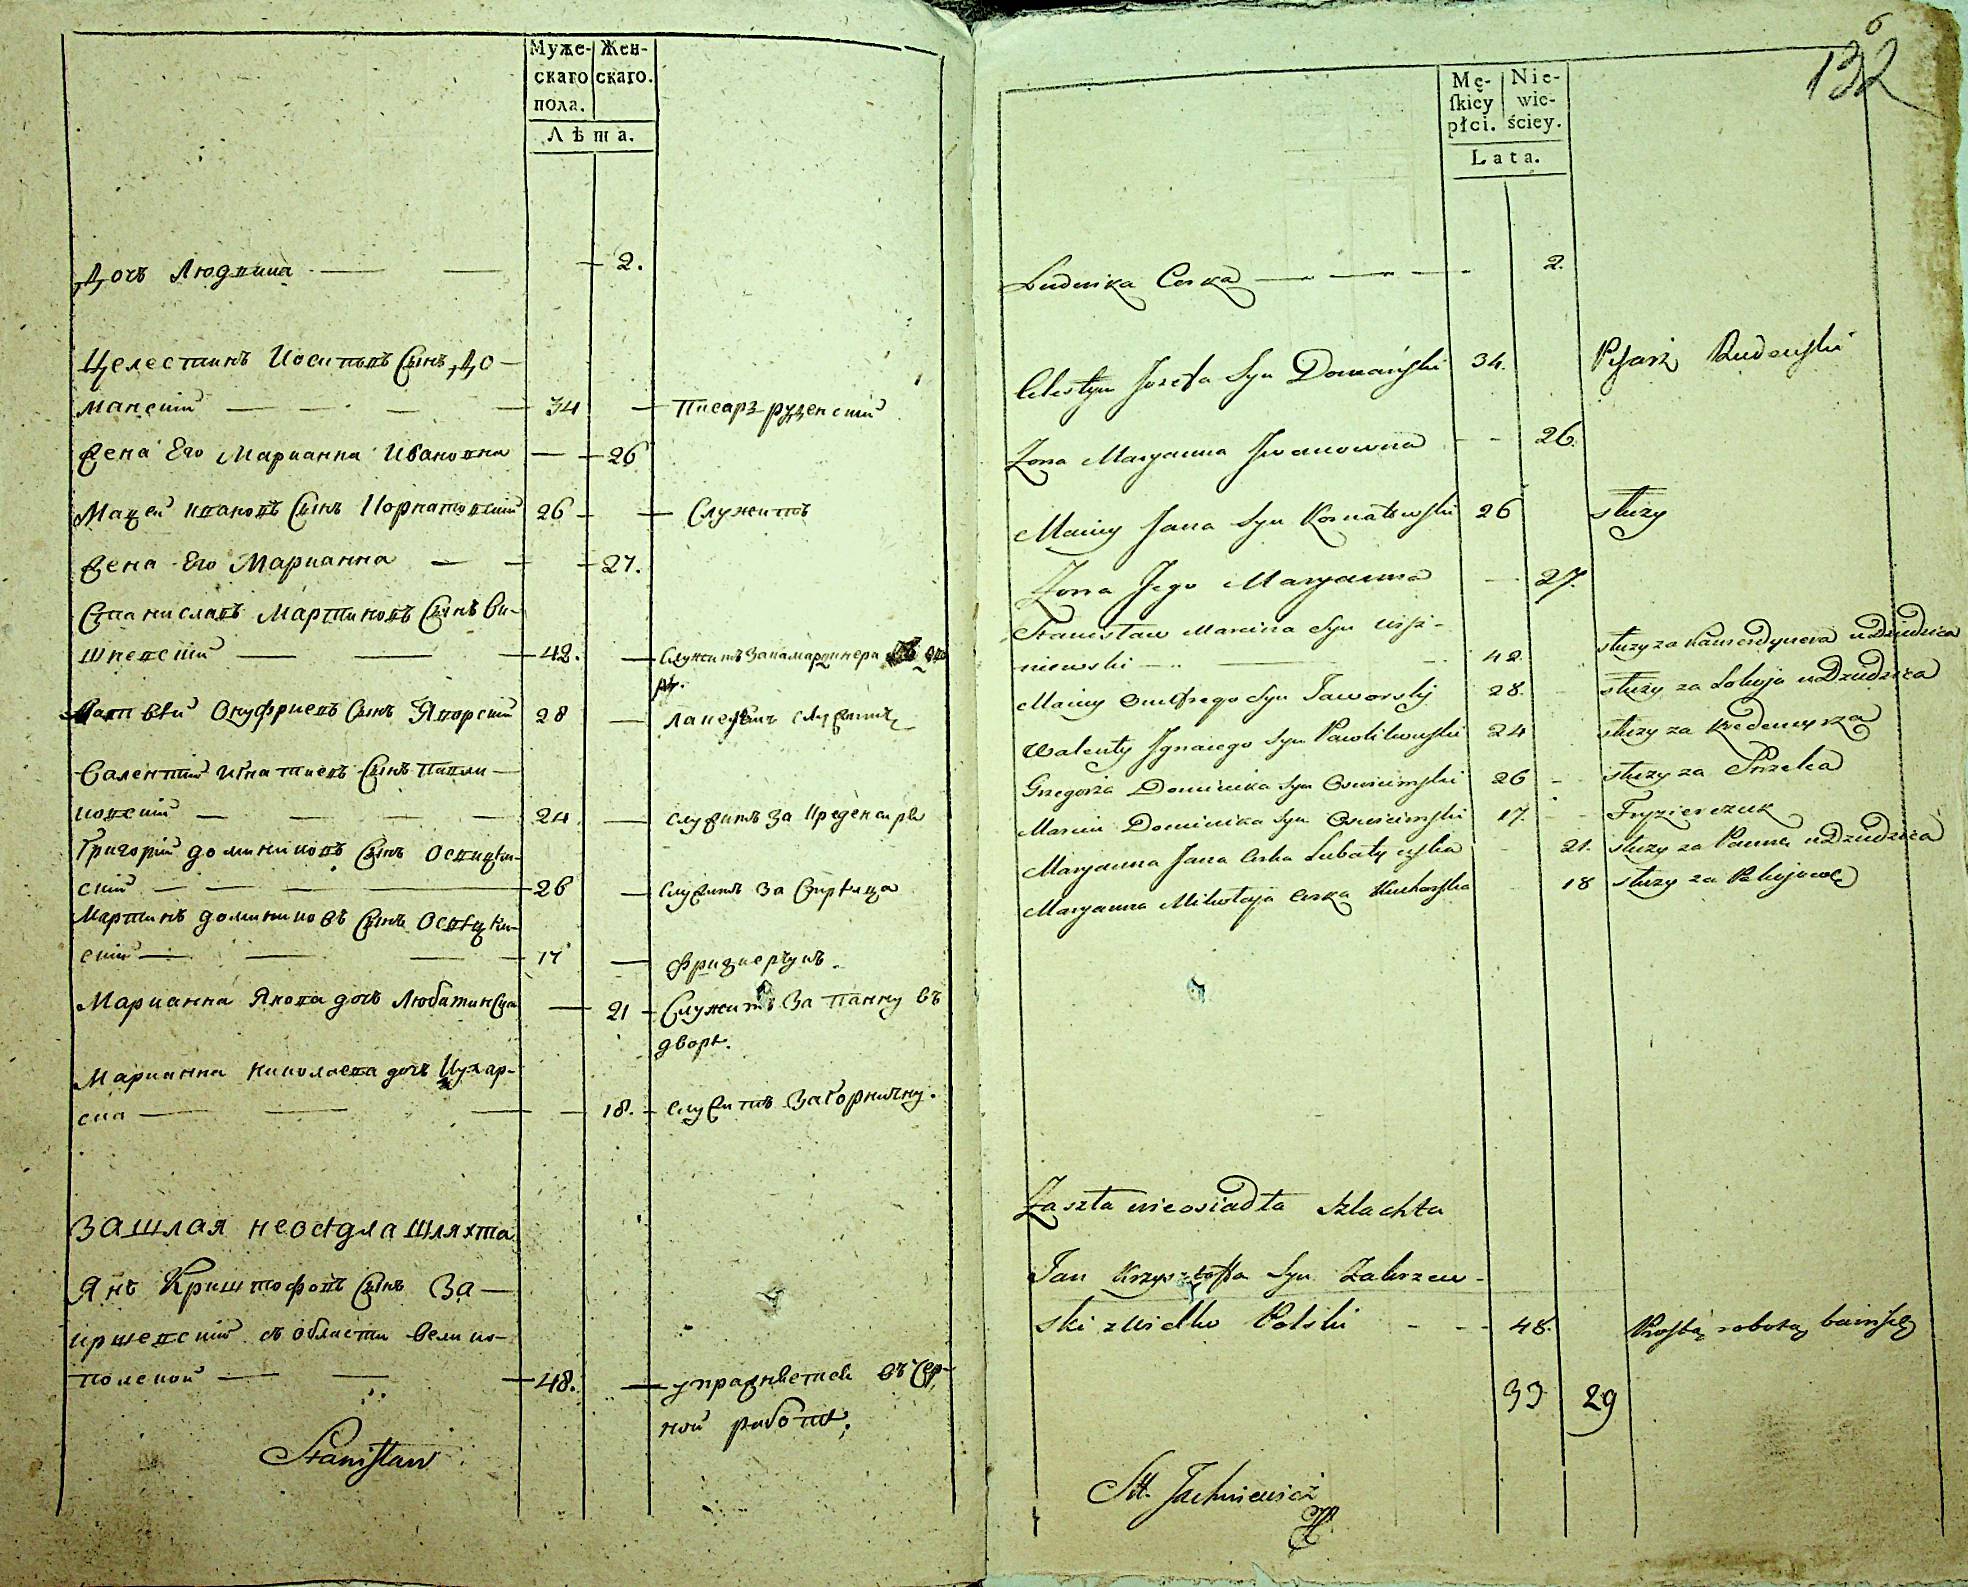 Муже- Жен-
скаго скаго.
пола.
Лѣта.
Дочь Людвика — — 2.
Целестинъ Иосифовъ Сынъ До-
манский — — — 34 — Писарз руденский
Жена Его Марианна Ивановна — 26
Мацей Ивановъ Сынъ Корнатовский 26 — Служитъ
Жена Его Марианна — — 27.
Станиславъ Мартиновъ Сынъ Ви-
шневский — — — 42. — Служитъ за камардинера
Онуфриевъ Сынъ Яворский 28 — лакеемъ служитъ
Валентий Игнатиевъ Сынъ Павли-
ковский — — — — 24 — служитъ за
Григорий доминиковъ Сынъ
ский — — — 26 — служитъ за Стрельца
Мартинъ доминиковъ Сынъ
ский — — — 17 — фризиерчукъ.
Марианна Якова дочь — 21 — Служитъ За панну въ
дворѣ.
Марианна николаева дочь Кухар-
ска — — — 18. — служитъ За Горничну.
Зашлая неоседла шляхта
Янъ Криштофовъ Сынъ За-
кржевский съ области велико-
полской — — 48. — упражняется въ
ной работе.
Stanisław
6
132
Mę- Nie-
ſkiey wie-
płci. ściey.
Lata.
Ludwika Corka — — — 2.
Celestyn Jozefa Syn Domański 34. Pisarz Rudenski
Zona Maryanna Iwanowna - - 26.
Maciey Jana Syn Kornatowski 26 służy
Zona Jego Maryanna — 27.
Stanisław Marcina Syn Wisz-
niewski — — 42. służy za Kamerdynera u Dziedzica
Maciey Onufrego Syn Jaworski 28. służy za Lokaja u Dziedzica
Walenty Ignacego Syn Pawlikowski 24 służy za Kredencyrza
Grzegorz Dominika Syn 26 - służy za Strzelca
Marcin Dominika Syn 17. Fryzierczuk
Maryanna Jana Corka - 21. służy za Panne u Dziedzica
Maryanna Mikołaja Corka Kucharska 18 służy za Pokojowę
Zaszła nieosiadła Szlachta
Jan Krzysztofa Syn Zakrzew-
ski z Wielko Polski - - - 48. Prostą robotą bawi się
33 29
St. Jachniewicz